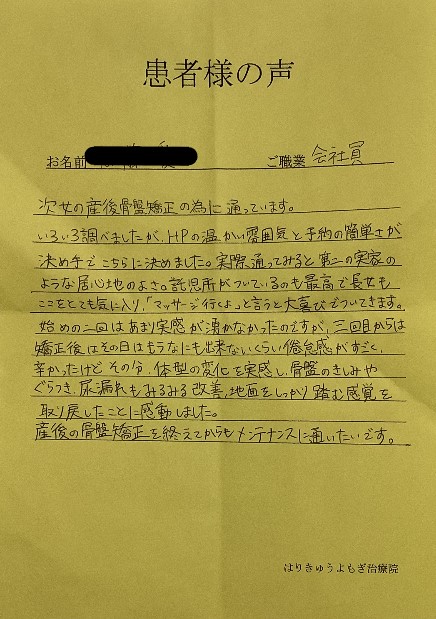 患者様の声
お名前
ご職業 会社員
次女の産後骨盤矯正の為に通っています。
いろいろ調べましたが、HPの温かい雰囲気と予約の簡単さが
決め手でこちらに決めました。実際通ってみると第二の実家の
ような居心地のよさ。託児所がついているのも最高で長女も
ここをとても気に入り、「マッサージ行くよっ」と言うと大喜びでついてきます。
始めの二回はあまり実感が湧かなかったのですが、三回目からは
矯正後はその日はもうなにも出来ないくらい倦怠感がすごく、
辛かったけどその分、体型の変化を実感し、骨盤のきしみや
ぐらつき、尿漏れもみるみる改善、地面をしっかり踏む感覚を
取り戻したことに感動しました。
産後の骨盤矯正を終えてからもメンテナンスに通いたいです。
はりきゅうよもぎ治療院